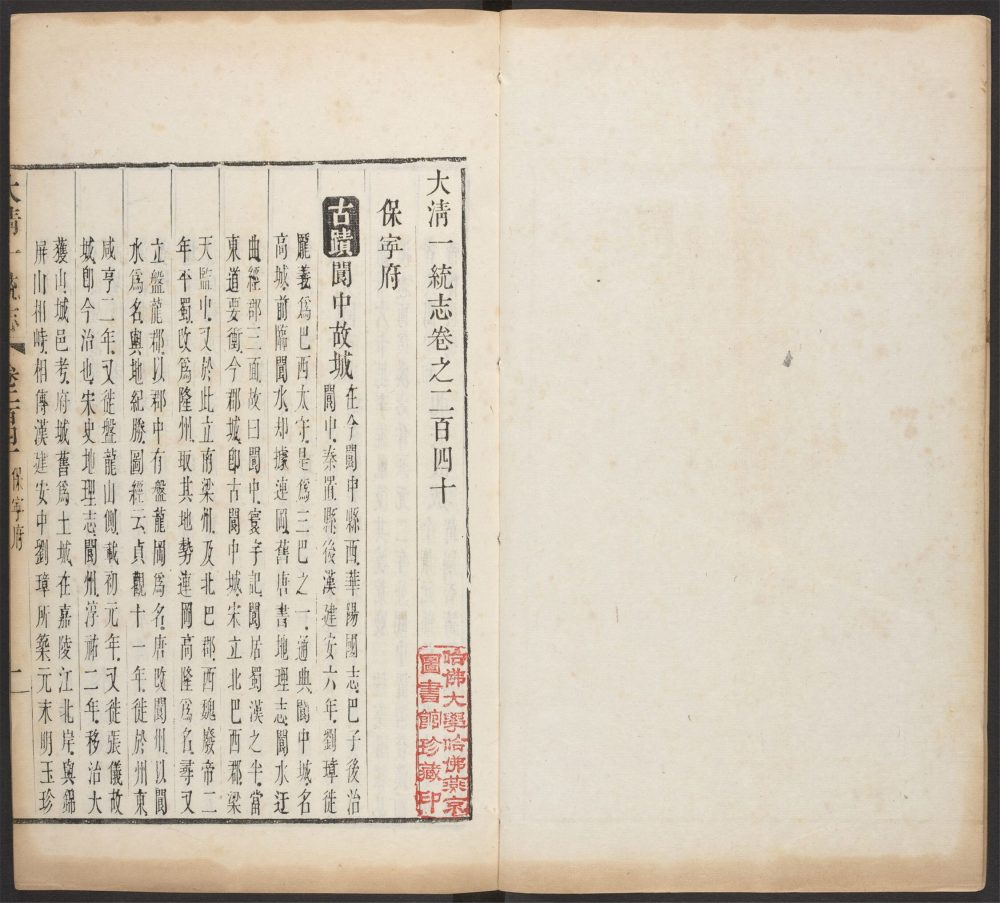 大清一統志卷之二百四十
保寧府
古蹟閬中故城在今閬中縣西華陽國志巴子後治
閬中秦置縣後漢建安六年劉璋徙
龎羲爲巴西太守是爲三巴之一通典閬中城名
高城前臨閬水却據連岡舊唐書地理志閬水迂
曲經郡三面故曰閬中寰宇記閬居蜀漢之半當
東道要衝今郡城卽古閬中城宋立北巴西郡梁
天監中又於此立府梁州及北巴郡西魏廢帝二
年平蜀改爲隆州取其地勢連岡高隆爲名尋又
立盤龍郡以郡中有盤龍岡爲名唐改閬州以閬
水爲名輿地紀勝圖經云貞觀十一年徙於州東
咸亨二年又徙盤龍山側載初元年又徙張儀故
城卽今治也宋史地理志閬州淳祐二年移治大
獲山城邑考府城舊爲土城在嘉陵江北岸與錦
屏山相峙相傳漢建安中劉璋所築元末明玉珍
大清一統志 卷之二百四十 保寧府 一
哈佛大學哈佛燕京
圖書館珍藏印